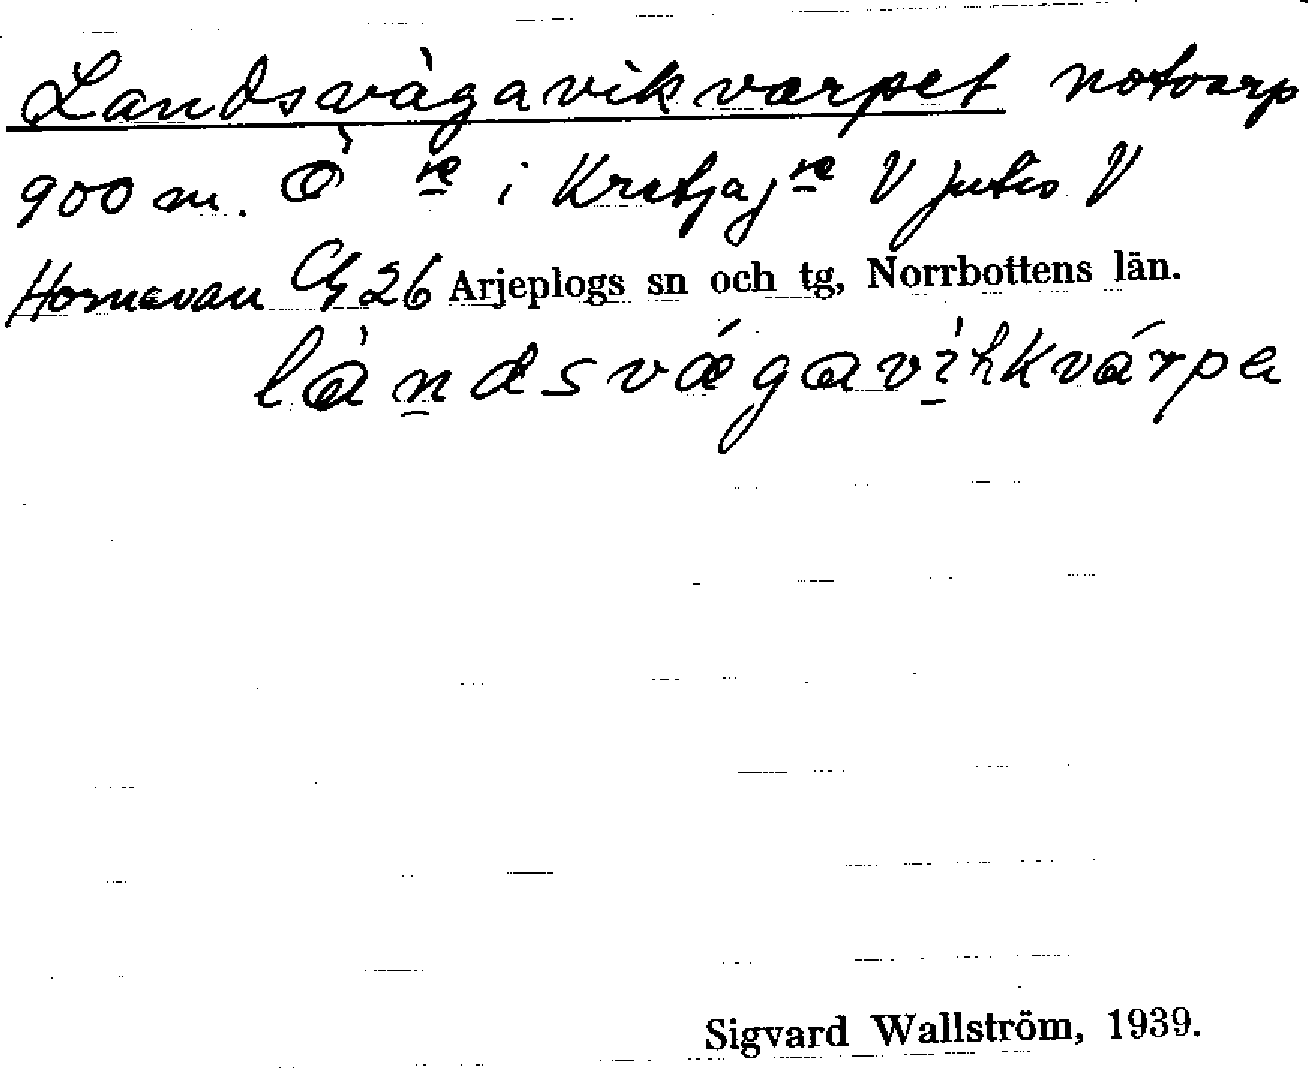 Landsvàgavìkvarpet notvarp
900 m. Ö re i Kretjaj re V jutis V
Hornavan Cg 26 Arjeplogs sn och tg, Norrbottens län.
làndsvǽgavìhkvárpa
Sigvard Wallström, 1939.